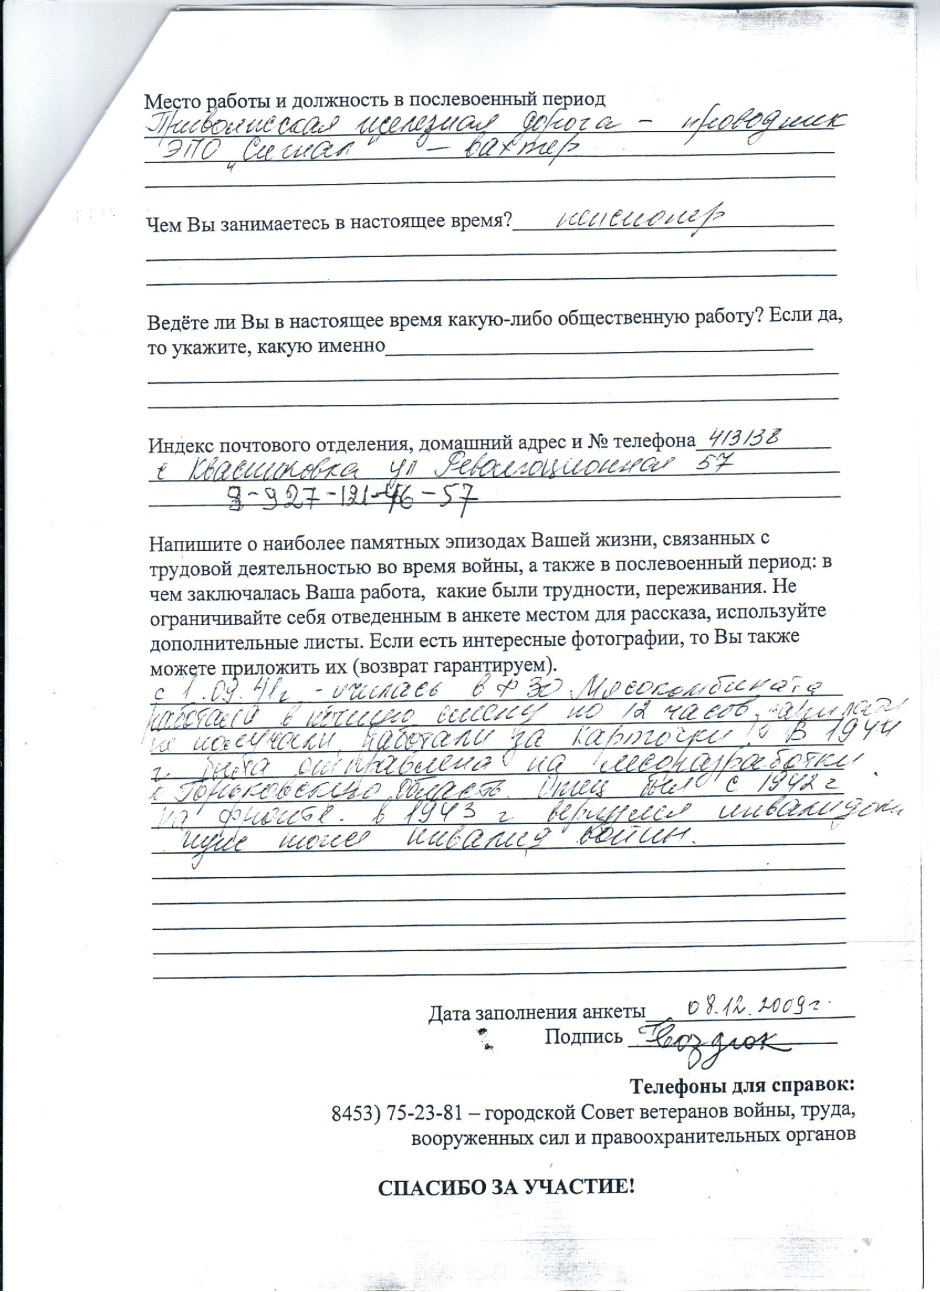 Место работы и должность в послевоенный период
Приволжская железная дорога – проводник
ЭПО „Сигнал" – вахтер
Чем Вы занимаетесь в настоящее время? пенсионер
Ведёте ли Вы в настоящее время какую-либо общественную работу? Если да,
то укажите, какую именно
Индекс почтового отделения, домашний адрес и № телефона 413138
с Квасниковка ул Революционная 57
8-927-121-46-57
Напишите о наиболее памятных эпизодах Вашей жизни, связанных с
трудовой деятельностью во время войны, а также в послевоенный период: в
чем заключалась Ваша работа, какие были трудности, переживания. Не
ограничивайте себя отведенным в анкете местом для рассказа, используйте
дополнительные листы. Если есть интересные фотографии, то Вы также
можете приложить их (возврат гарантируем).
с 1.09.41г - училась в ФЗО Мясокомбината
работали в ночную смену по 12 часов, зарплату
не получали, работали за карточки. В 1944
г. была отправлена на лесоразработки
в Горьковскую область. Отец был с 1942 г
на фронте. в 1943 г вернулся инвалидом
муж тоже инвалид войны.
Дата заполнения анкеты 08.12.2009г.
Подпись
Телефоны для справок:
8453) 75-23-81 – городской Совет ветеранов войны, труда,
вооруженных сил и правоохранительных органов
СПАСИБО ЗА УЧАСТИЕ!